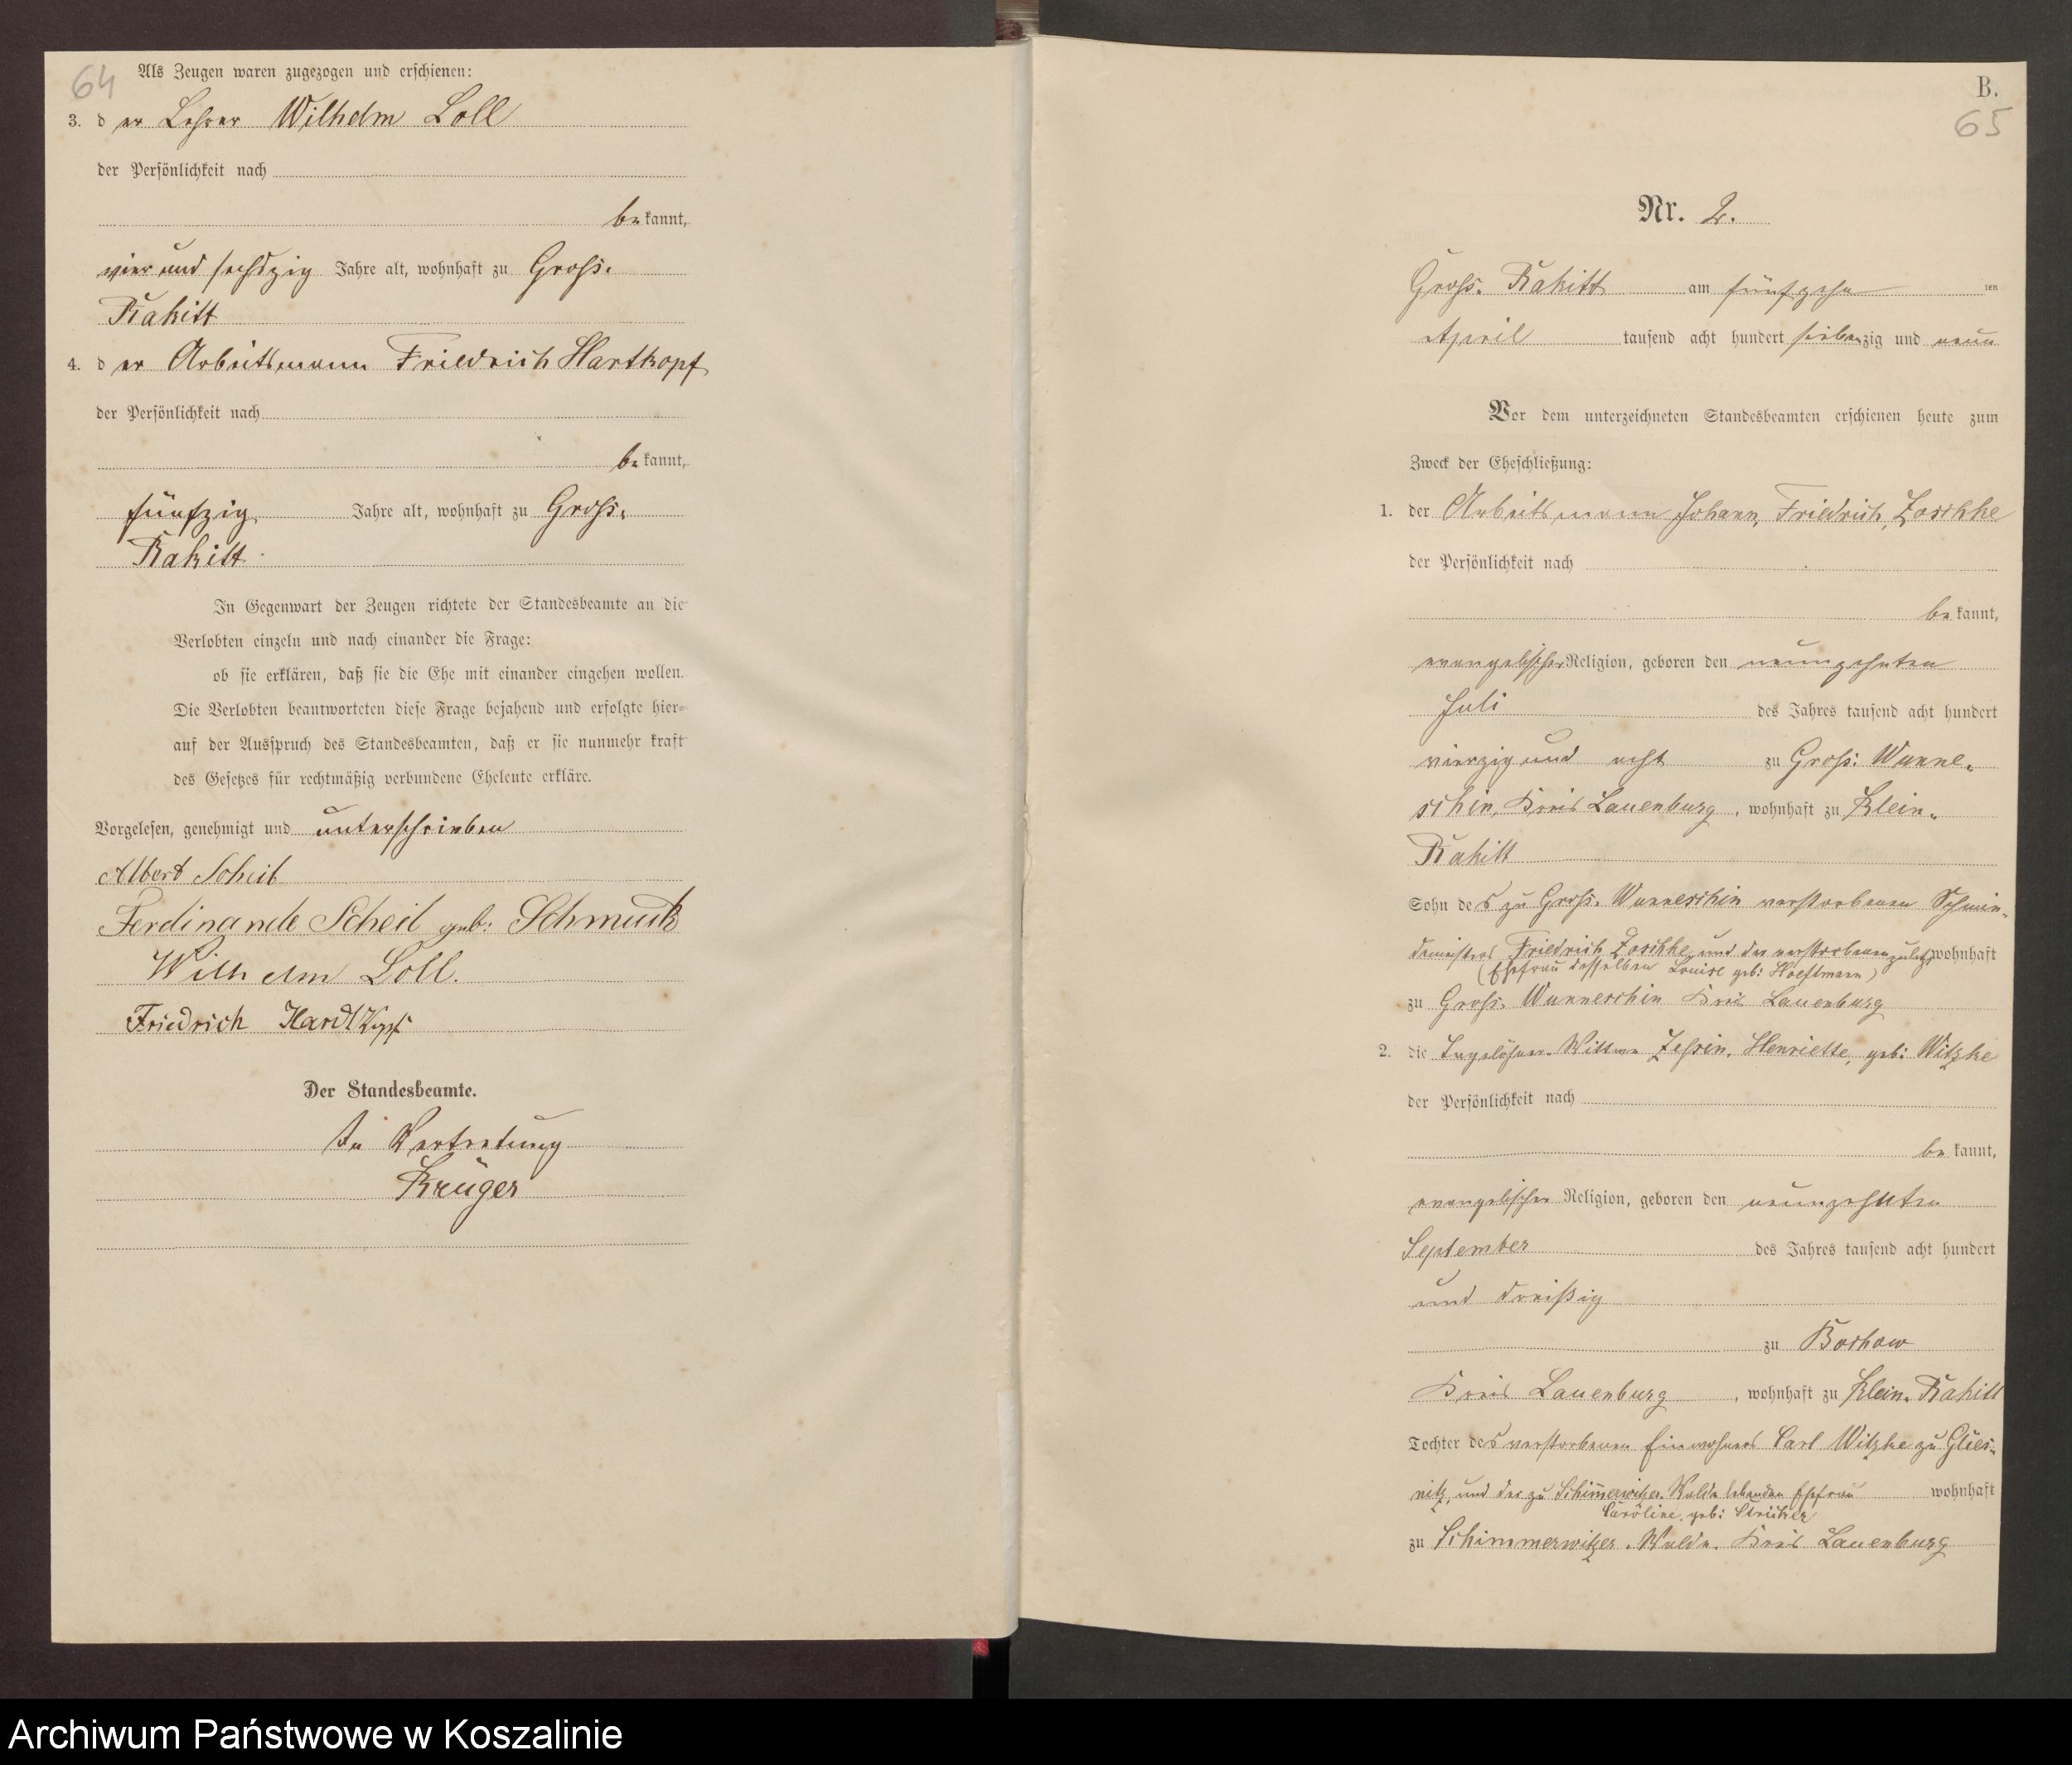 64
Als Zeugen waren zugezogen und erschienen:
3. der Lehrer Wilhelm Loll
der Persönlichkeit nach
bekannt,
vier und sechszig Jahre alt, wohnhaft zu Gross-
Rakitt
4. der Arbeitsmann Friedrich Hartkopf
der Persönlichkeit nach
bekannt,
fünfzig Jahre alt, wohnhaft zu Gross-
Rakitt
In Gegenwart der Zeugen richtete der Standesbeamte an die
Verlobten einzeln und nach einander die Frage:
ob sie erklären, daß sie die Ehe mit einander eingehen wollen.
Die Verlobten beantworteten diese Frage bejahend und erfolgte hier-
auf der Ausspruch des Standesbeamten, daß er sie nunmehr kraft
des Gesetzes für rechtmäßig verbundene Eheleute erkläre.
Vorgelesen, genehmigt und unterschrieben
Albert Scheil
Ferdinande Scheil geb: Schmuck
Wilhelm Loll.
Friedrich Hardtkopf
Der Standesbeamte.
In Vertretung
Krüger
B.
65
Nr. 2.
Gross-Rakitt am fünfzehn ten
April tausend acht hundert siebenzig und neun
Vor dem unterzeichneten Standesbeamten erschienen heute zum
Zweck der Eheschließung:
1. der Arbeitsmann Johann, Friedrich, Zoschke
der Persönlichkeit nach
bekannt,
evangelischer Religion, geboren den neunzehnten
Juli des Jahres tausend acht hundert
vierzig und acht zu Gross: Wunne-
schin, Kreis Lauenburg, wohnhaft zu Klein-
Rakitt
Sohn des zu Gross-Wunneschin verstorbenen Schmie-
demeisters Friedrich Zoschke und der verstorbenen zuletzt wohnhaft
(Ehefrau desselben Louise geb: Hoeftmann)
zu Gross-Wunneschin Kreis Lauenburg
2. die Tagelöhner-Wittwe Henriette, geb: Witzke
der Persönlichkeit nach
bekannt,
evangelischer Religion, geboren den neunzehnten
September des Jahres tausend acht hundert
und dreißig
zu Bochow
Kreis Lauenburg, wohnhaft zu Klein-Rakitt
Tochter des verstorbenen Einwohners Carl Witzke zu Glies-
nitz, und der zu Schimmerwitzer-Walde lebenden Ehefrau wohnhaft
Caroline, geb:
zu Schimmerwitzer-Walde. Kreis Lauenburg
Archiwum Państwowe w Koszalinie